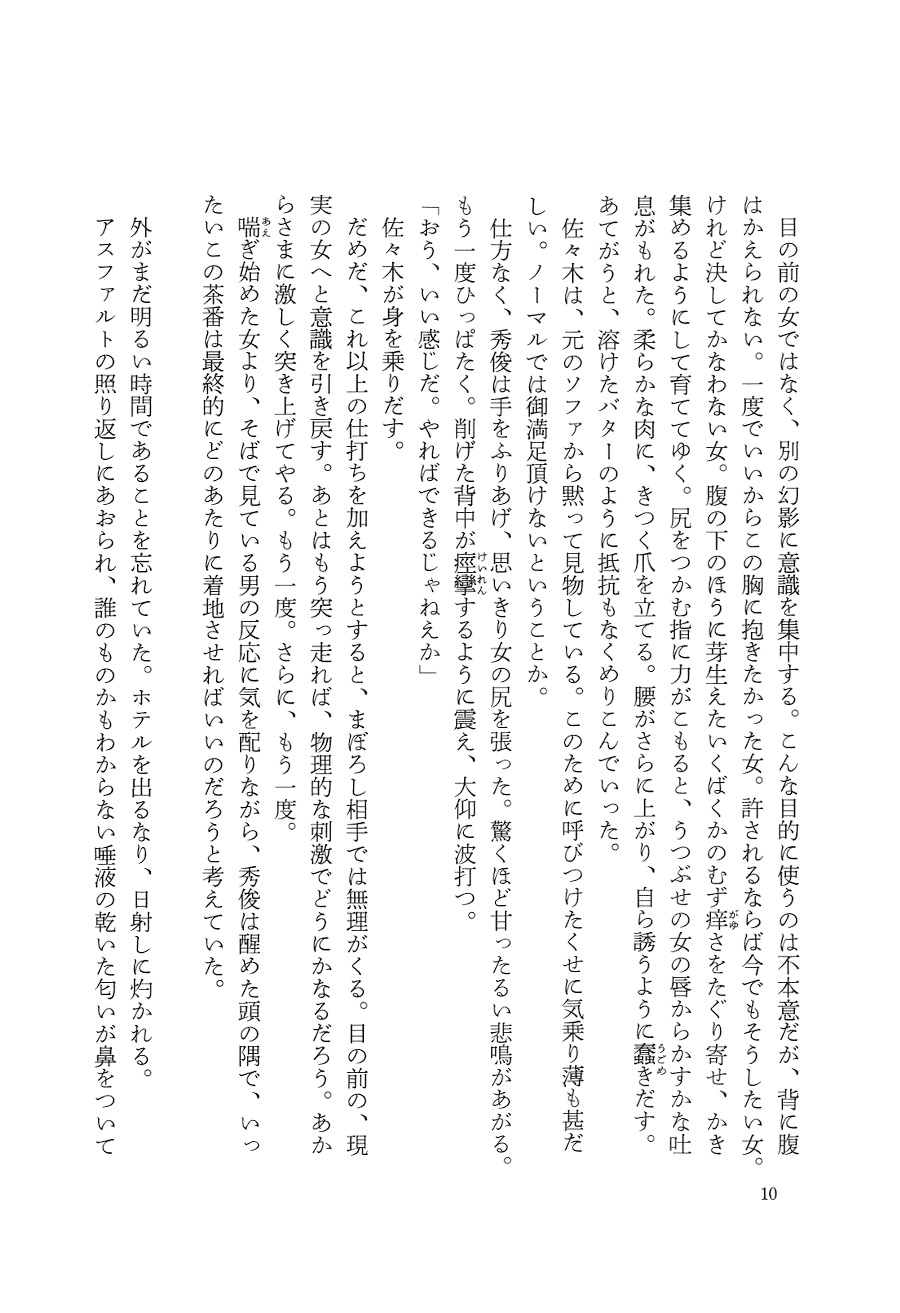 目の前の女ではなく、別の幻影に意識を集中する。こんな目的に使うのは不本意だが、背に腹
はかえられない。一度でいいからこの胸に抱きたかった女。許されるならば今でもそうしたい女。
けれど決してかなわない女。腹の下のほうに芽生えたいくばくかのむず痒さをたぐり寄せ、かき
集めるようにして育ててゆく。尻をつかむ指に力がこもると、うつぶせの女の唇からかすかな吐
息がもれた。柔らかな肉に、きつく爪を立てる。腰がさらに上がり、自ら誘うように蠢きだす。
あてがうと、溶けたバターのように抵抗もなくめりこんでいった。
佐々木は、元のソファから黙って見物している。このために呼びつけたくせに気乗り薄も甚だ
しい。ノーマルでは御満足頂けないということか。
仕方なく、秀俊は手をふりあげ、思いきり女の尻を張った。驚くほど甘ったるい悲鳴があがる。
もう一度ひっぱたく。削げた背中が痙攣するように震え、大仰に波打つ。
「おう、いい感じだ。やればできるじゃねえか」
佐々木が身を乗りだす。
だめだ、これ以上の仕打ちを加えようとすると、まぼろし相手では無理がくる。目の前の、現
実の女へと意識を引き戻す。あとはもう突っ走れば、物理的な刺激でどうにかなるだろう。あか
らさまに激しく突き上げてやる。もう一度。さらに、もう一度。
喘ぎ始めた女より、そばで見ている男の反応に気を配りながら、秀俊は醒めた頭の隅で、いっ
たいこの茶番は最終的にどのあたりに着地させればいいのだろうと考えていた。
外がまだ明るい時間であることを忘れていた。ホテルを出るなり、日射しに灼かれる。
アスファルトの照り返しにあおられ、誰のものかもわからない唾液の乾いた匂いが鼻をついて
10